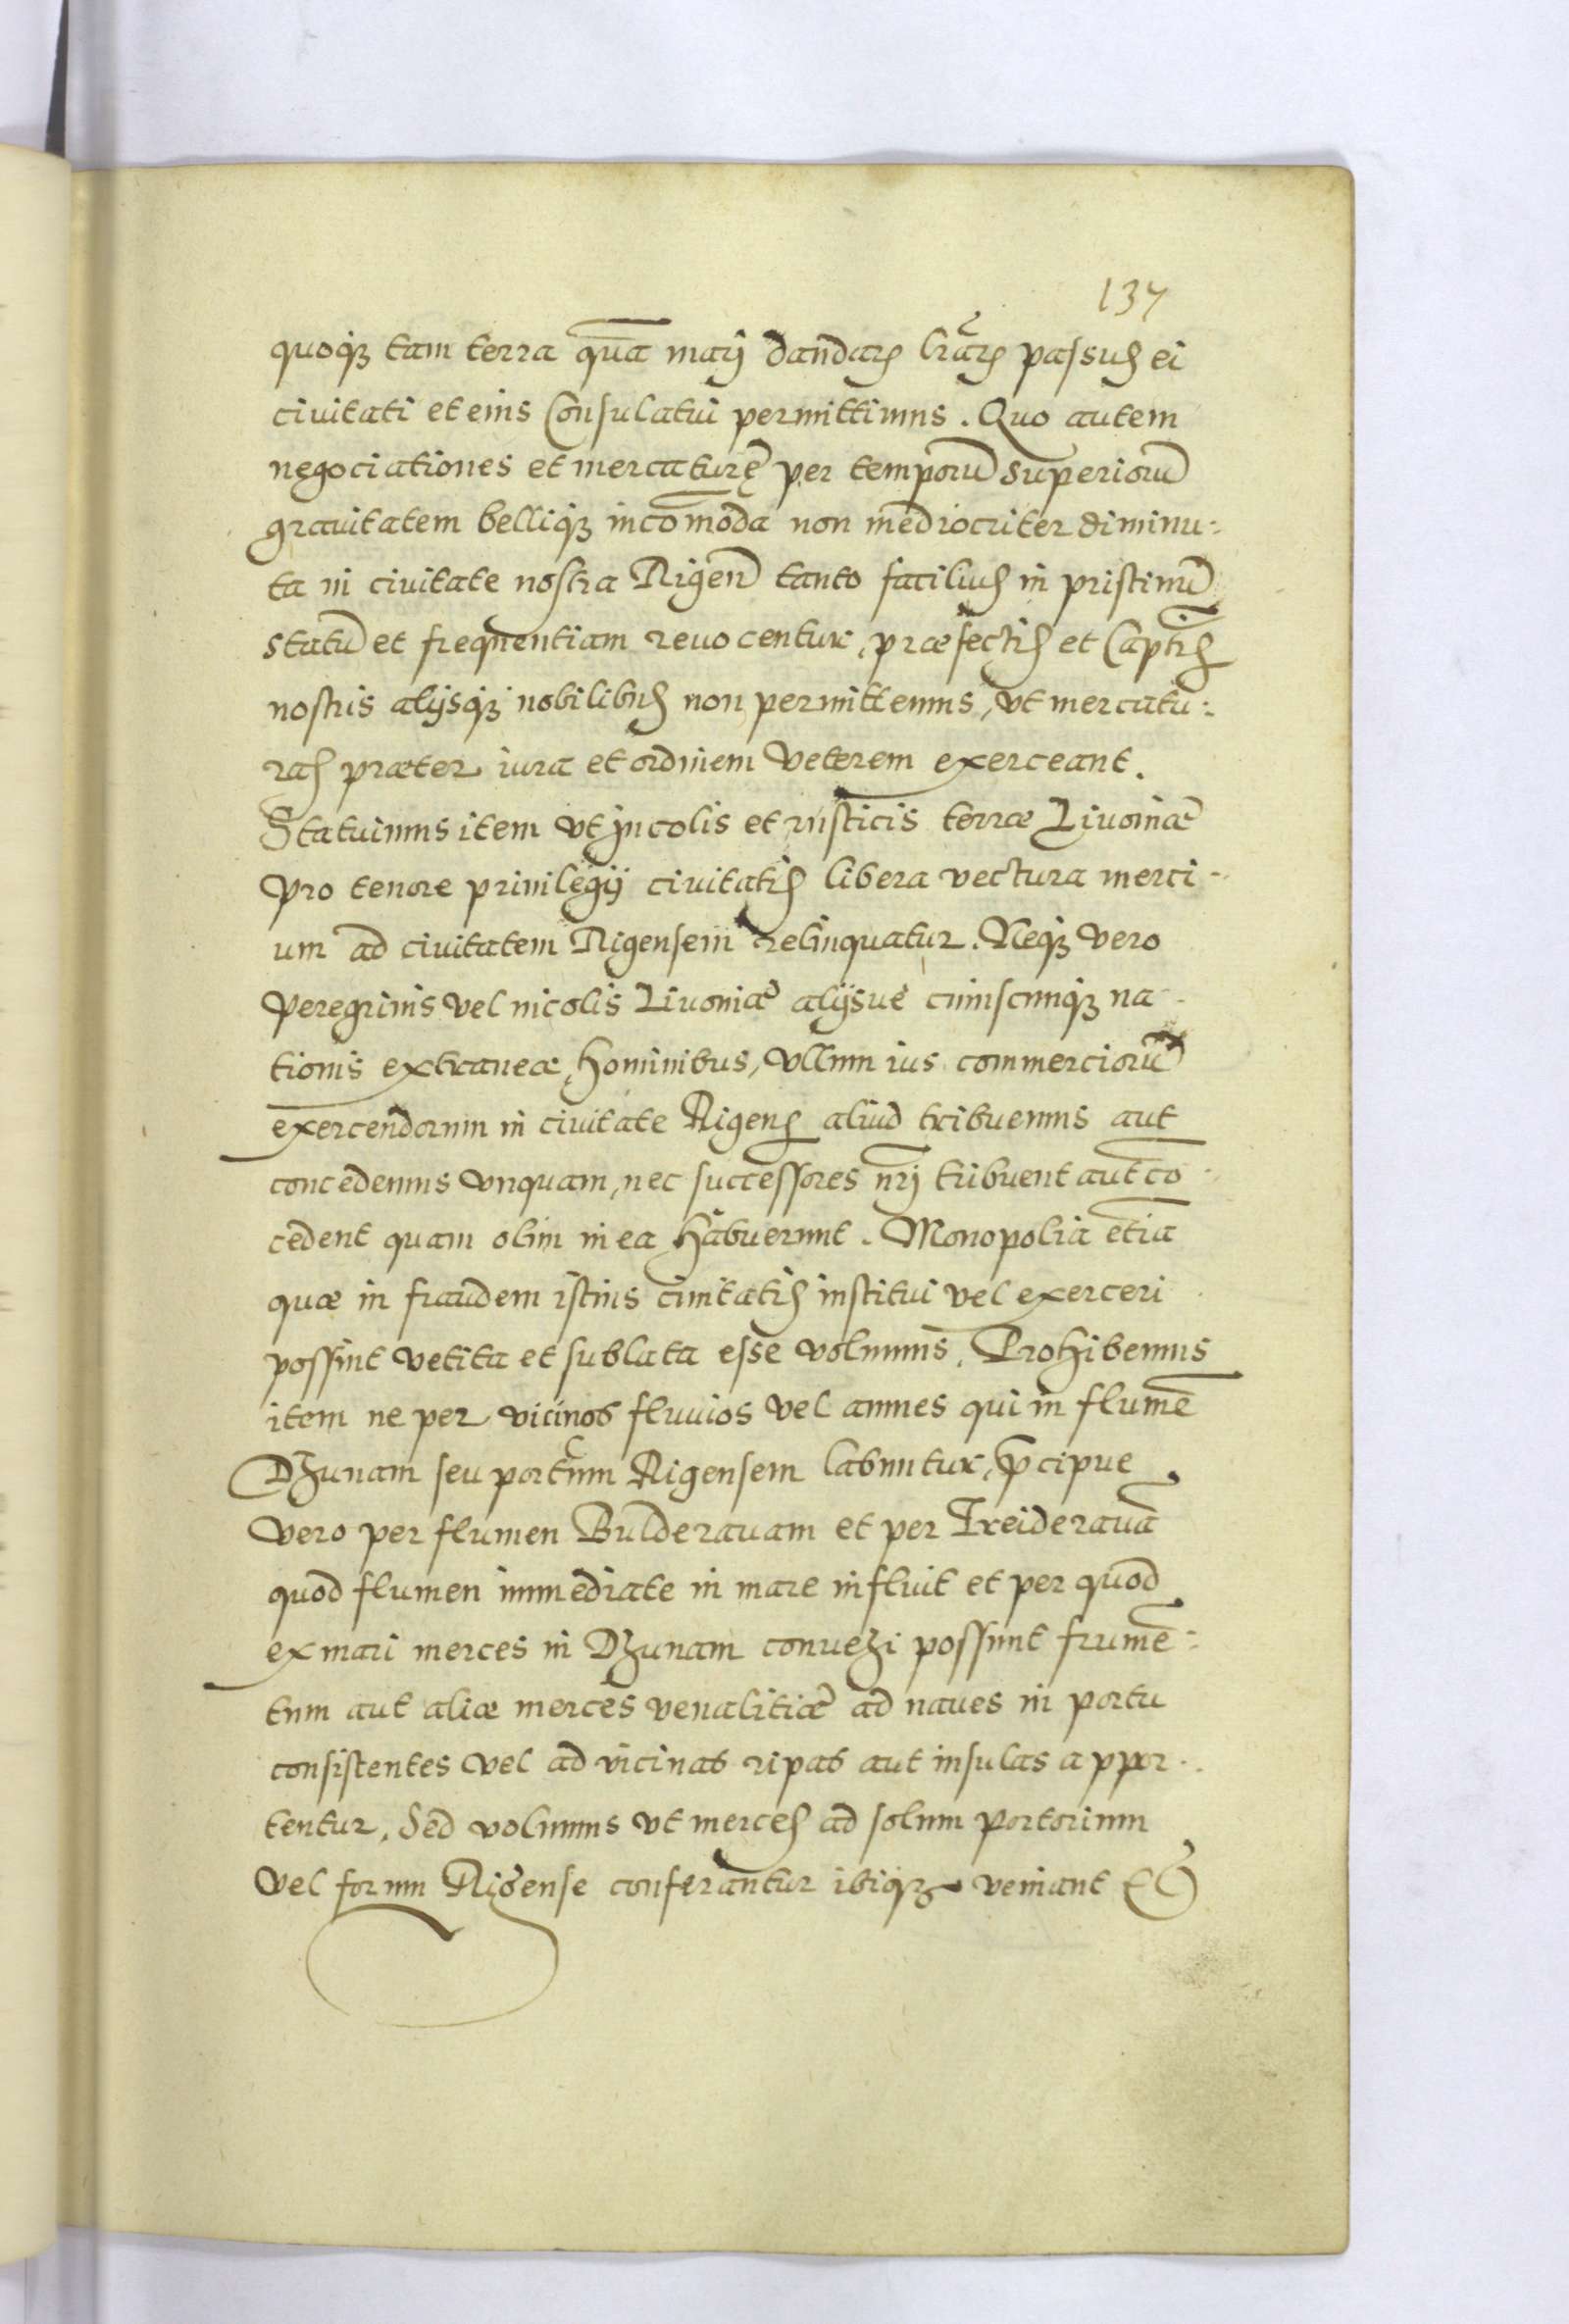 137
quoqꝫ tam terra qua̅ mari dandarꝫ lrarꝫ passus ei
civitati et eius Consulatui permittimus. Quo autem
negociationes et mercaturę per temporu̅ superioru̅
gravitatem belliqꝫ inco̅moda non mediocriter diminu:
ta in civitate nostra Rigen̅ tanto facilius in pristinu̅
statu̅ et frequentiam revocentur, præfectis et Capt̅is
nostris alijsqꝫ nobilibus non permittemus, vt mercatu:
ras præter iura et ordinem veterem exerceant.
Statuimus item vt jncolis et rusticis terræ Livoniæ
pro tenore privilegij civitatis libera vectura merci-
um ad civitatem Rigensem relinquatur. Neqꝫ vero
peregrinis vel incolis Livoniæ alijsue cuiuscunqꝫ na-
tionis extraneæ, hominibus, vllum ius commercioru̅
exercendorum in civitate Rigens aliud tribuemus aut
concedemus vnquam, nec successores nr̅j tribuent aut co̅-
cedent quam olim in ea habuerunt. Monopolia etia̅
quæ in fraudem istius civitatis institui vel exerceri
possint vetita et sublata esse volumus. Prohibemus
item ne per vicinos fluvios vel amnes qui in flume̅
Dzunam seu portum Rigensem labuntur, p̅cipue
vero per flumen Bulderauam et per Treiderava̅
quod flumen immediate in mare influit et per quod
ex mari merces in Dzunam convehi possunt frume̅:
tum aut aliæ merces venalitiæ ad naves in portu
consistentes vel ad vicinas ripas aut insulas appor-
tentur. Sed volumus vt merces ad solum portorium
vel forum Rigense conferantur ibiqꝫ veniant Et